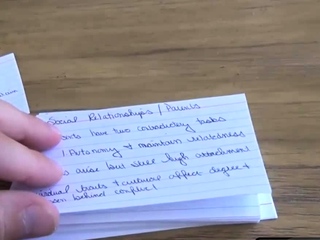 Social Relationships / Parents
have two contradictory tasks
Autonomy & maintain relatedness
arise but still high attachment
traits & cultural affect degree &
behind conflict